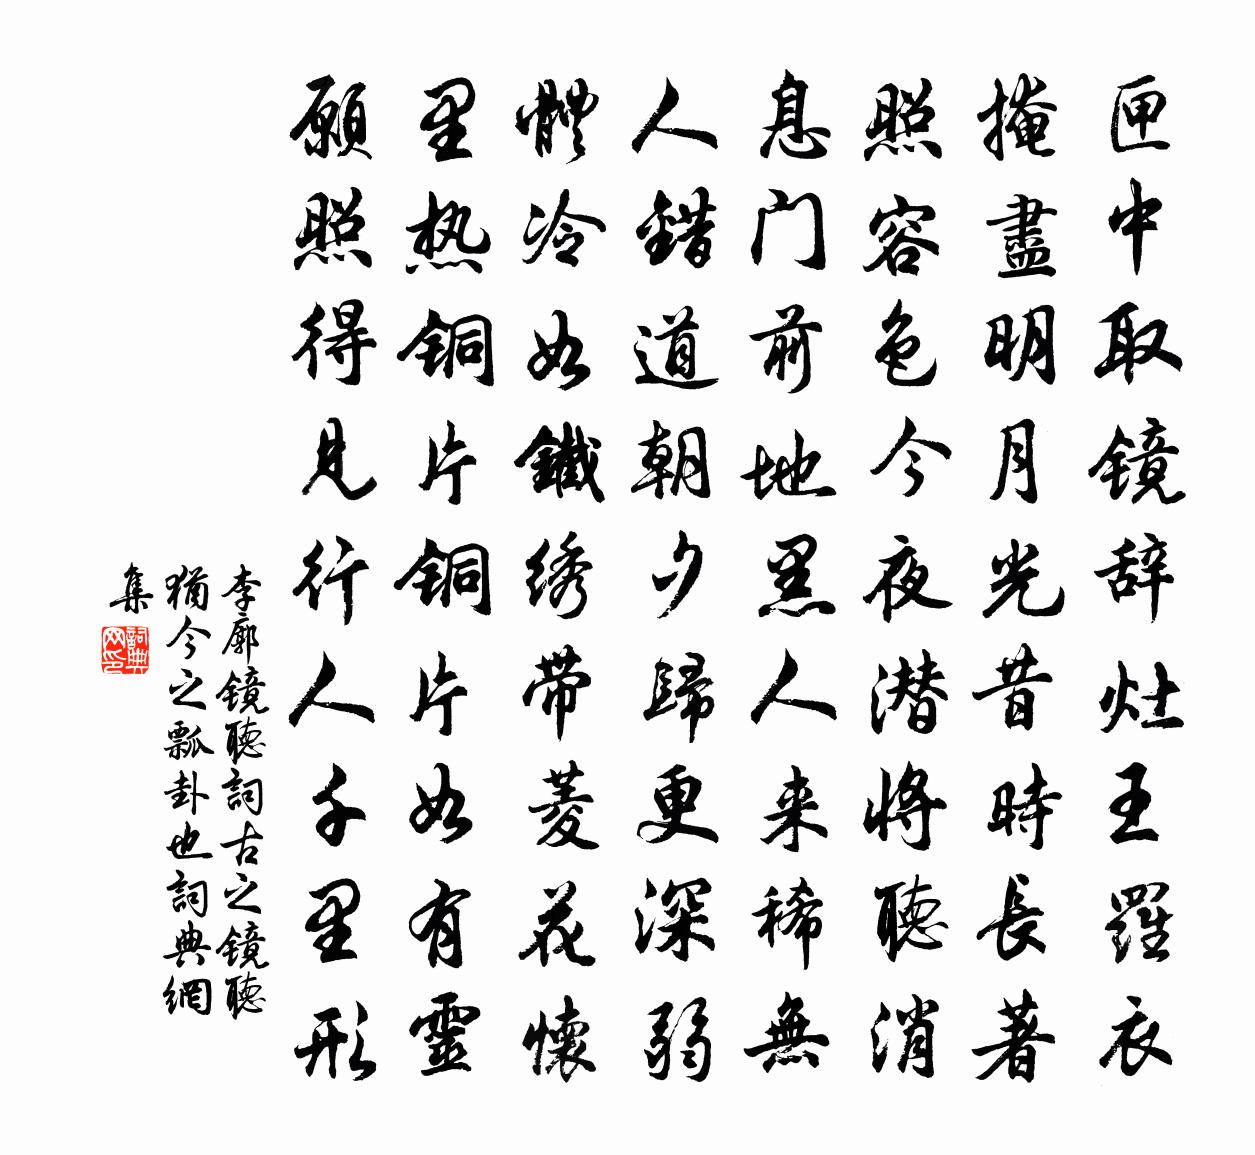 匣中取镜辞灶王羅衣
掩盡明月光昔時長著
照容色今夜潜將聽消
息门前地黑人来稀無
人錯道朝夕歸更深弱
體冷如鐵绣带菱花懷
里热铜片铜片如有靈
願照得見行人千里形
李廓镜聽詞古之镜聽
猶今之瓢卦也詞典網
集
詞典网印